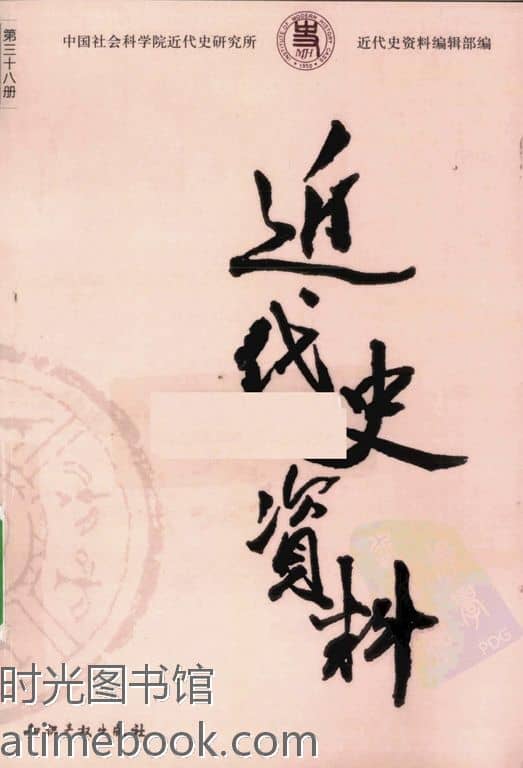 第三十八册
中国社会科学院近代史研究所
近代史资料编辑部编
INSTITUTE OF MODERN HISTORY CASS
MH
1950
近代史資料
PDG
时光图书馆
知识产权出版社
atimebook.com